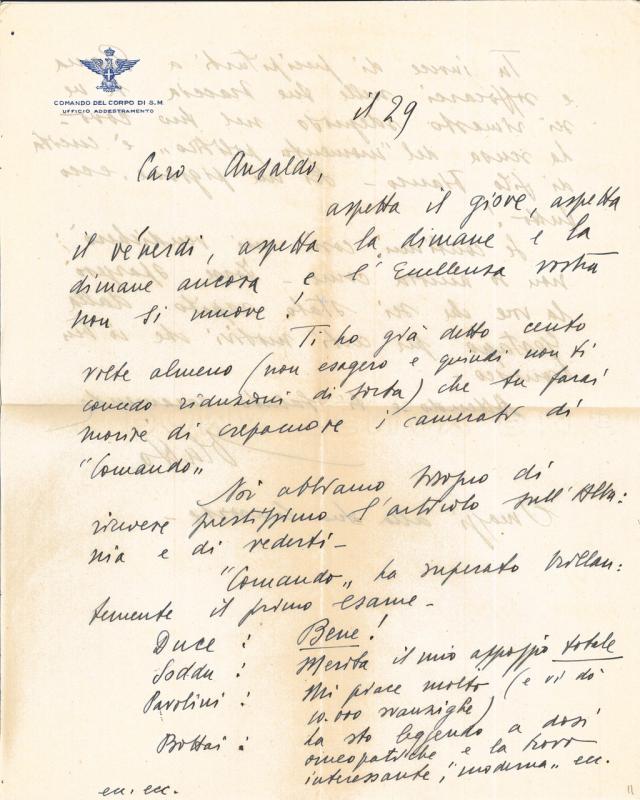 COMANDO DEL CORPO DI S. M.
UFFICIO ADDESTRAMENTO
il 29
Caro Ansaldo,
aspetta il giove, aspetta
il venerdi, aspetta la dimane e la
dimane ancora e l'Eccellenza vostra
non si muove!
Ti ho già detto cento
volte almeno (non esagero e quindi non ti
concedo riduzioni di sorta) che tu farai
morire di crepacuore i camerati di
"Comando„
Noi abbiamo bisogno di
ricevere prestissimo l'articolo sull'Alba:
nia e di vederti—
"Comando„ ha superato brillan:
temente il primo esame—
Duce: Bene!
Soddu: Merita il mio appoggio totale
Pavolini: Mi piace molto (e vi dò
10.000 svanzighe)
Bottai: la sto leggendo a dosi
omeopatiche e la trovo
interessante, "moderna„ ecc.
ecc. ecc.
11